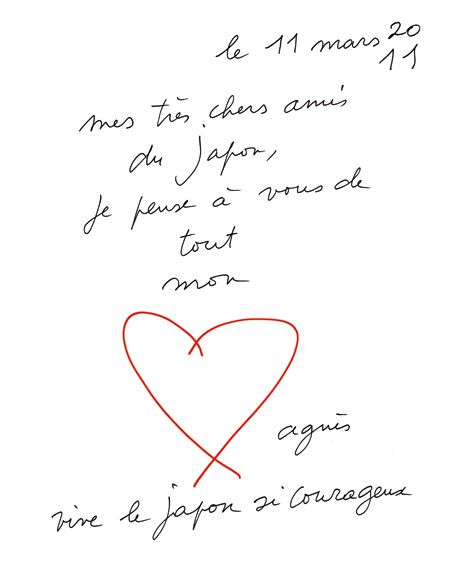 le 11 mars 20
11
mes très chers amis
du japon,
je pense à vous de
tout
mon
agnès
vive le japon si courageux